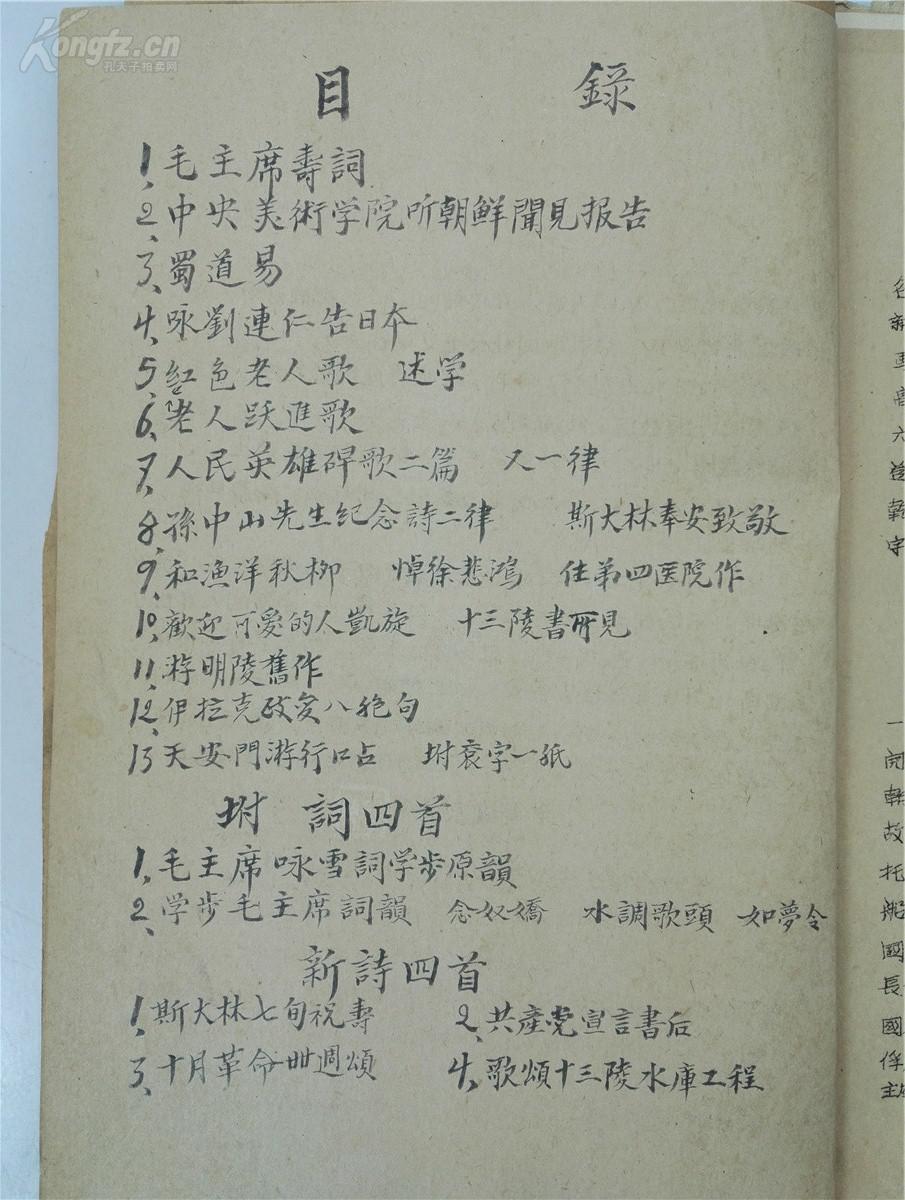 Kongfz.cn
孔夫子拍卖网
目 錄
1、毛主席壽詞
2、中央美術学院听朝鮮聞見报告
3、蜀道易
4、咏劉連仁告日本
5、紅色老人歌 述学
6、老人跃進歌
7、人民英雄碑歌二篇 又一律
8、孫中山先生紀念詩二律 斯大林奉安致敬
9、和漁洋秋柳 悼徐悲鴻 住第四医院作
10、歡迎可愛的人凱旋 十三陵書所見
11、游明陵舊作
12、伊拉克政变八絶句
13、天安門游行口占 坿袁字一紙
坿 詞四首
1、毛主席咏雪詞学步原韻
2、学步毛主席詞韻 念奴嬌 水調歌頭 如夢令
新詩四首
1、斯大林七旬祝壽 2、共產党宣言書后
3、十月革命卅週頌 4、歌頌十三陵水庫工程